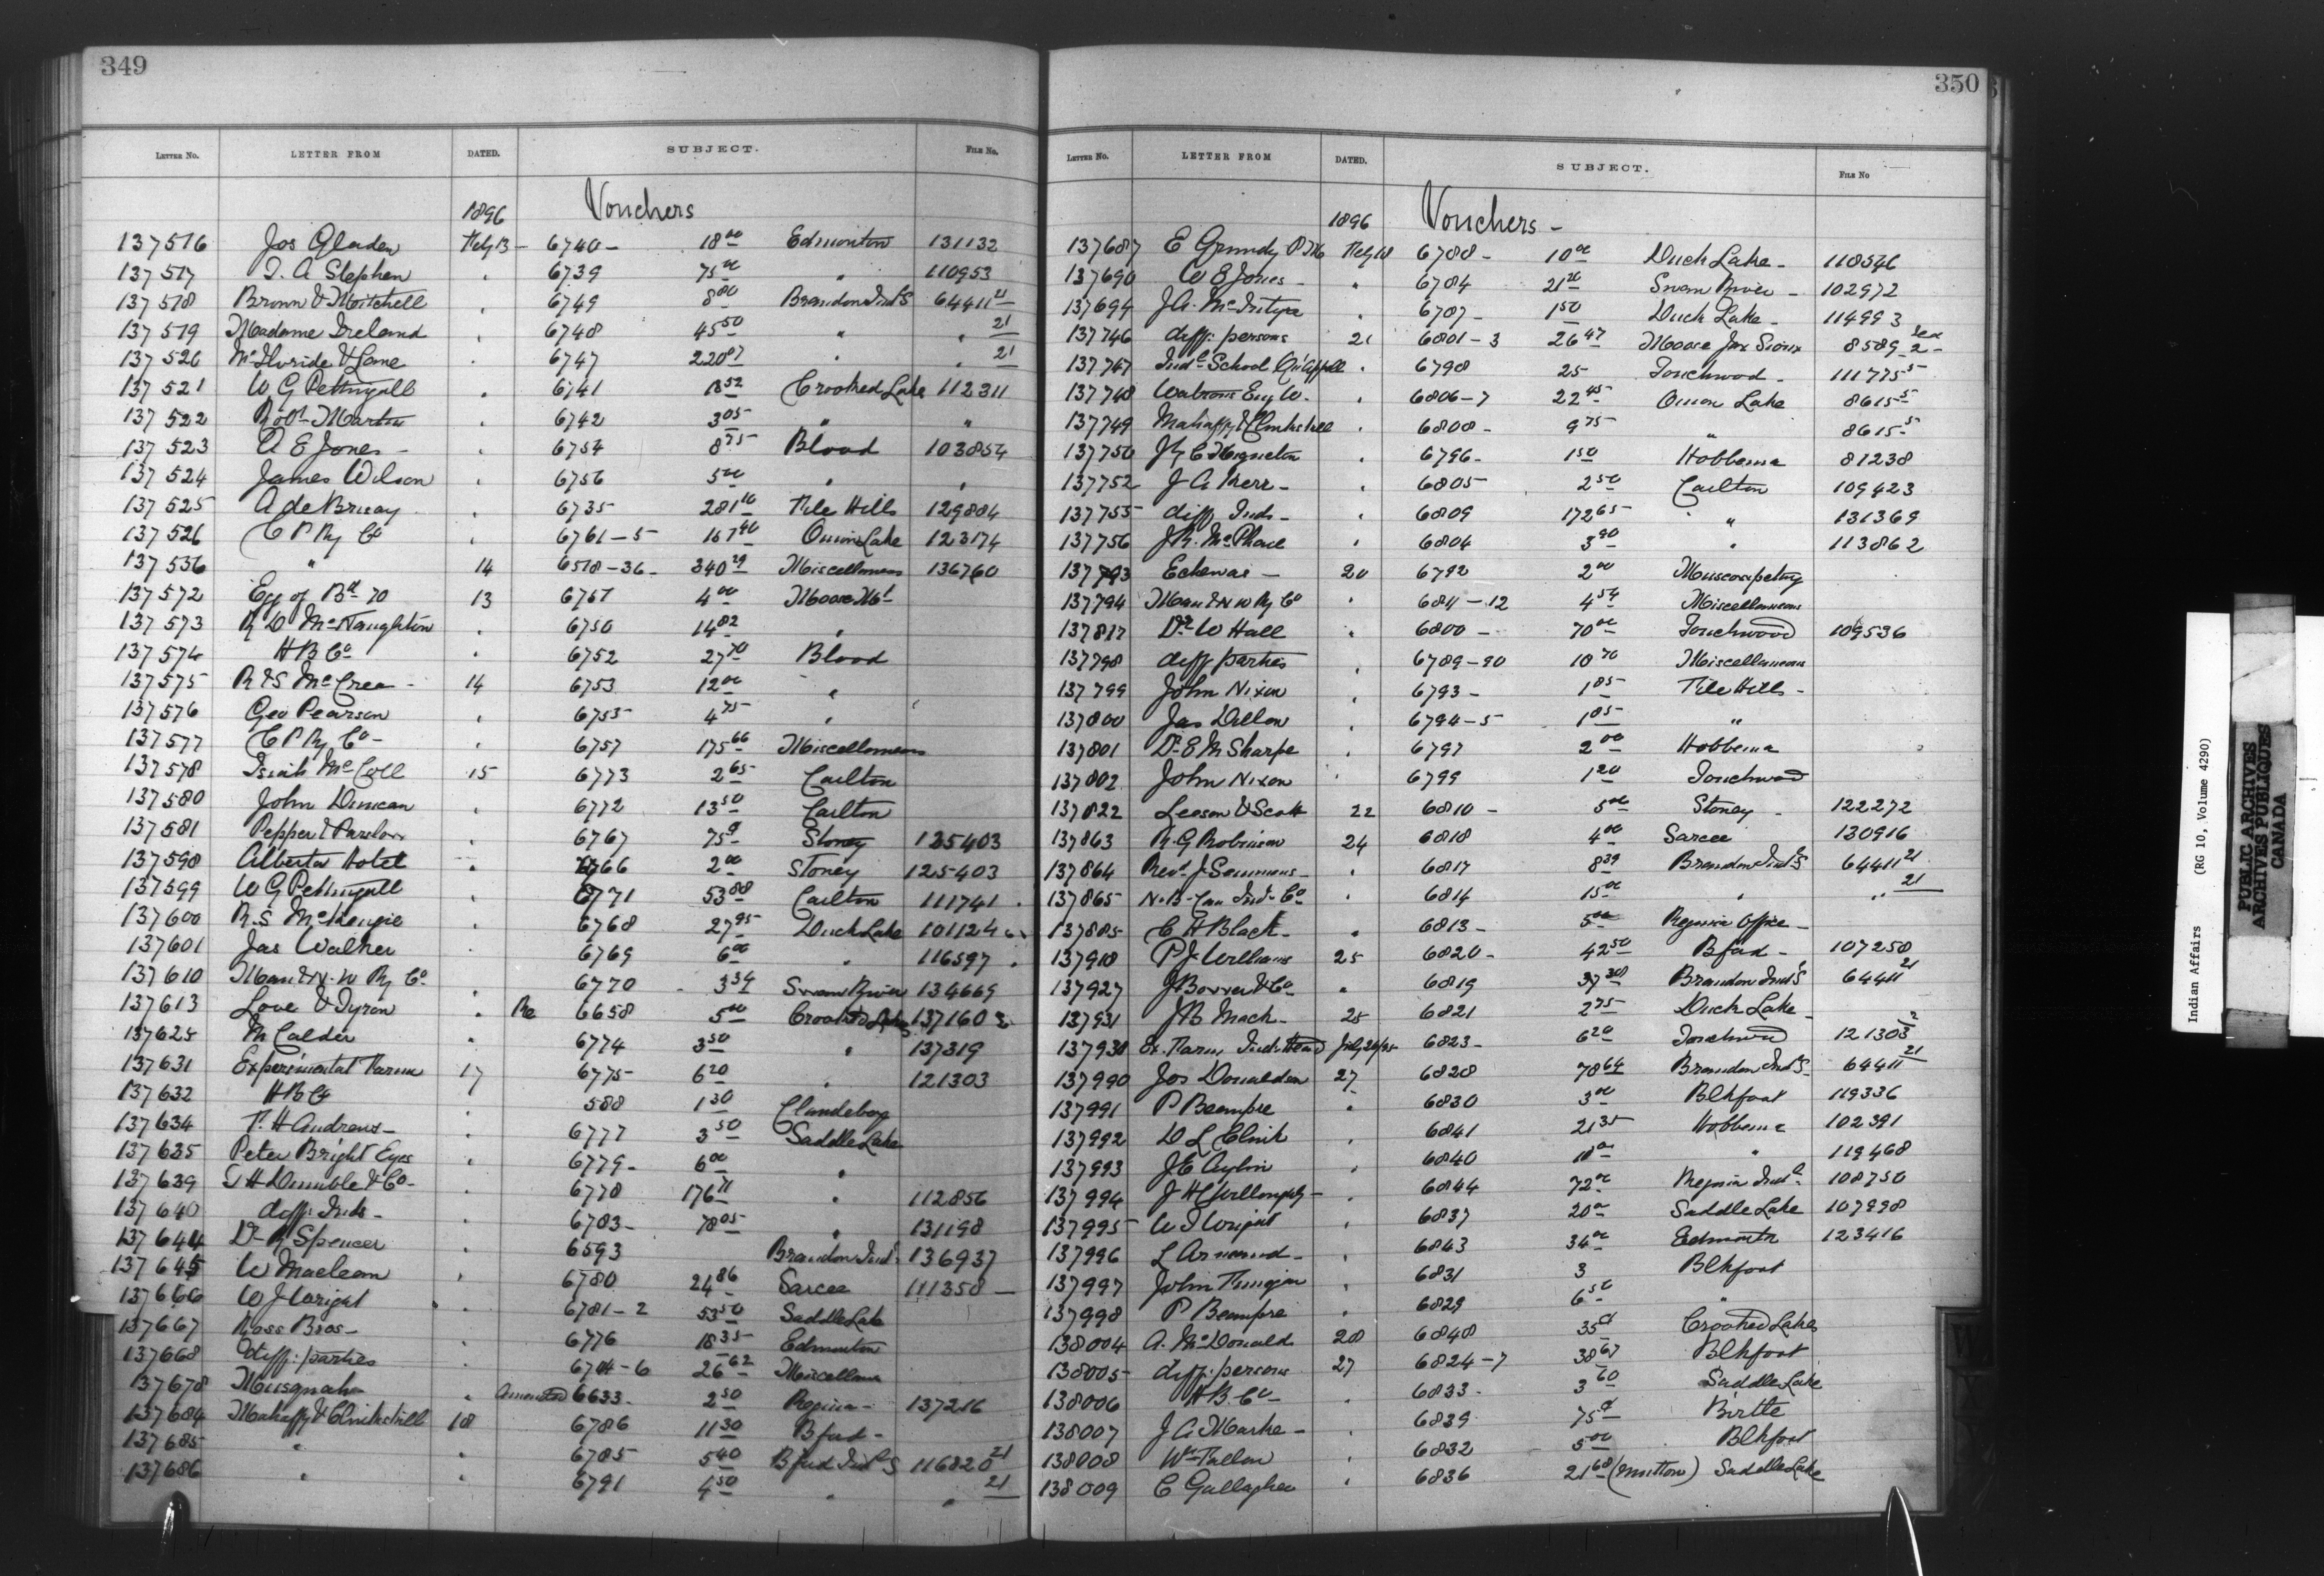 349
LETTER NO. LETTER FROM DATED. SUBJECT. FILE NO.
1896 Vouchers
137516 Jos Gladen Feby 13 - 6740 - 18 00 Edmonton 131132
137517 T. A Stephen " 6739 75 00 " 110953
137518 Brown & Mitchell " 6749 8 80 Brandon Ind S 64411 21
137519 Madame Ireland " 6748 45 50 " " 21
137520 & Lane 6747 220 87 " " 21
137521 W G Pettingall " 6741 18 52 Crooked Lake 112311
137522 Robt Martin 6742 3 05 " "
137523 A E Jones - " 6754 8 75 Blood 103854
137524 James Wilson " 6756 5 00 " "
137525 A de Bruay " 6735 281 File Hills 129804
137526 C P Ry Co " 6761-5 167 40 Onion Lake 123174
137536 " 14 6518-36- 340 29 Miscellaneous 136760
137572 Egg of Bd 70 13 6751 4 00 Moose Mt
137573 R D McNaughton " 6750 14 82 "
137574 H B Co " 6752 27 70 Blood
137575 R & S McCrea - 14 6753 12 00 "
137576 Geo Pearson " 6755 4 75 "
137577 C P Ry Co - " 6757 175 66 Miscellaneous
137578 Isiah McColl 15 6773 2 65 Carlton
137580 John Duncan " 6772 13 50 Carlton
137581 Pepper & Parslow " 6767 75 Stoney 125403
137598 Alberta Hotel " 6766 2 00 Stoney 125403
137599 W G Pettingall " 6771 53 88 Carlton 111741
137600 R.S. McKenzie " 6768 27 95 Duck Lake 101124
137601 Jas Walker 6769 6 00 " 116597
137610 Man & N.W Ry Co " 6770 3 34 Swan River 134669
137613 Love & Tyron " Re 6658 5 00 Crooked Lakes 137160
137625 M Calder " 6774 3 50 " 137319
137631 Experimental Farm 17 6775 6 20 " 121303
137632 H B Co " 588 1 30 Clandeboy
137634 T. H Andrews - " 6777 3 50 Saddle Lake
137635 Peter Bright Eyes " 6779 - 6 00 "
137639 T H Dumble & Co - " 6778 176 71 " 112856
137640 diff. Inds - " 6783 - 78 05 " 131198
137644 Dr R Spencer " 6593 Brandon Ind S 136937
137645 W Maclean " 6780 24 86 Sarcee 111358 -
137666 W J Wright " 6781-2 53 50 Saddle Lake
137667 Ross Bros - " 6776 18 35 Edmonton
137668 diff. parties " 6704-6 26 62 Miscellaneous
137678 Musquah " amended 6633 - 2 50 Regina - 137216
137684 Mahaffy & Clinkskill 18 6786 11 30 Bfd -
137685 " " 6785 5 40 Bfd Ind S 116820 21
137686 " " 6791 4 50 " " 21
350
LETTER NO. LETTER FROM DATED. SUBJECT. FILE NO
1896 Vouchers -
137687 E Grundy P M Feby 18 6788 - 10 00 Duck Lake - 118546
137690 W E Jones - " 6784 21 Swan River - 102972
137694 J A. McIntyre " 6787 - 1 50 Duck Lake - 114993
137746 diff. persons 21 6801-3 26 47 Moose Jaw Sioux 8589
137747 Indl School Qu'Appelle " 6798 25 Touchwood - 111775 5
137748 Watrous Eng W. " 6806-7 22 45 Onion Lake 8615 5
137749 Mahaffy & Clinkskill " 6808 - 9 75 " 8615 5
137750 " 6796 - 1 50 Hobbema 81238
137752 J A Kerr - " 6805 2 50 Carlton 109423
137755 diff Inds - " 6809 172 65 " 131369
137756 J R. McPhail " 6804 3 90 " 113862
137793 20 6792 2 00 Muscowpetung
137794 Man & N W Ry Co " 6811-12 4 54 Miscellaneous
137817 Dr W Hall " 6800 - 70 00 Touchwood 109536
137798 diff parties " 6789-90 18 70 Miscellaneous
137799 John Nixon " 6793 - 1 85 File Hills -
137800 Jas Dillon " 6794-5 1 85 "
137801 Dr E M Sharpe " 6797 2 00 Hobbema
137802 John Nixon " 6799 1 20 Touchwood
137822 Leeson & Scott 22 6810 - 5 00 Stoney - 122272
137863 R G Robinson 24 6818 4 00 Sarcee 130916
137864 Revd J Semmens - " 6817 8 39 Brandon Ind S 64411 21
137865 N.B. Can Ind. Co " 6814 15 00 " " 21
137885 C H Black - " 6813 - 5 00 Regina Office -
137918 P J Williams 25 6820 - 42 50 Bfd - 107258
137927 J Bower & Co " 6819 37 38 Brandon Ind S 64411 21
137931 J B Mack - 25 6821 2 75 Duck Lake -
137938 Ex. Farm Ind. Head July 26/95 6823 - 6 20 Touchwood 121303
137990 Jos Donaldson 27 6828 78 64 Brandon Ind S - 64411 21
137991 P Beaupre " 6830 3 00 Blkfoot 119336
137992 D L Clink " 6841 21 35 Hobbema 102391
137993 J E Aylin " 6840 18 00 " 119468
137994 J H C Willoughby - " 6844 72 00 Regina Indl 108750
137995 W J Wright " 6837 20 00 Saddle Lake 107998
137996 L Armand - " 6843 34 00 Edmonton 123416
137997 John " 6831 3 Blkfoot
137998 P Beaupre " 6829 6 50 "
138004 A. McDonald 28 6848 35 Crooked Lakes
138005 diff. persons 27 6824-7 38 67 Blkfoot
138006 H B. Co - " 6833 - 3 60 Saddle Lake
138007 J A Markle - 6839 75 Birtle
138008 Wm Fallon " 6832 5 00 Blkfoot
138009 C Gallagher " 6836 21 68 (mutton) Saddle Lake
Indian Affairs (RG 10, Volume 4290)
PUBLIC ARCHIVES
ARCHIVES PUBLIQUES
CANADA